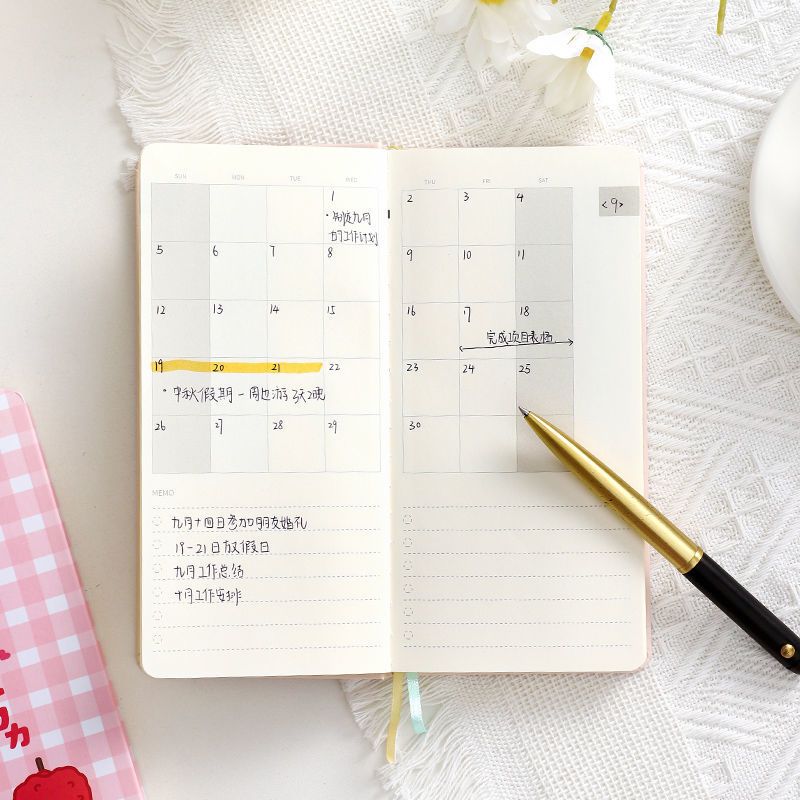 SUN MON TUE WED THU FRI SAT
1 2 3 4 <9>
·制定九月
的工作计划
5 6 7 8 9 10 11
12 13 14 15 16 17 18
完成项目表格
19 20 21 22 23 24 25
·中秋假期-周边游 3天2晚
26 27 28 29 30
MEMO
九月十四日参加朋友婚礼
19-21日放假日
九月工作总结
十月工作安排